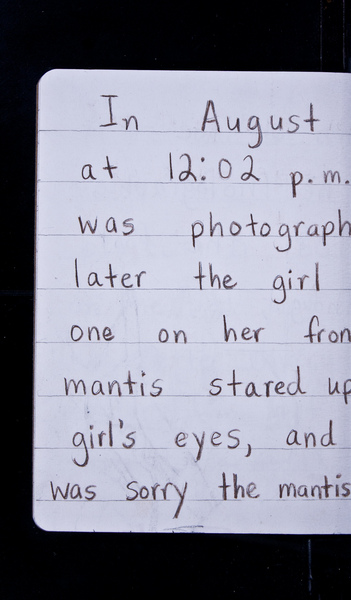 In August
at 12:02 p.m.
was photograph
later the girl
one on her fron
mantis stared up
girl's eyes, and
was sorry the mantis